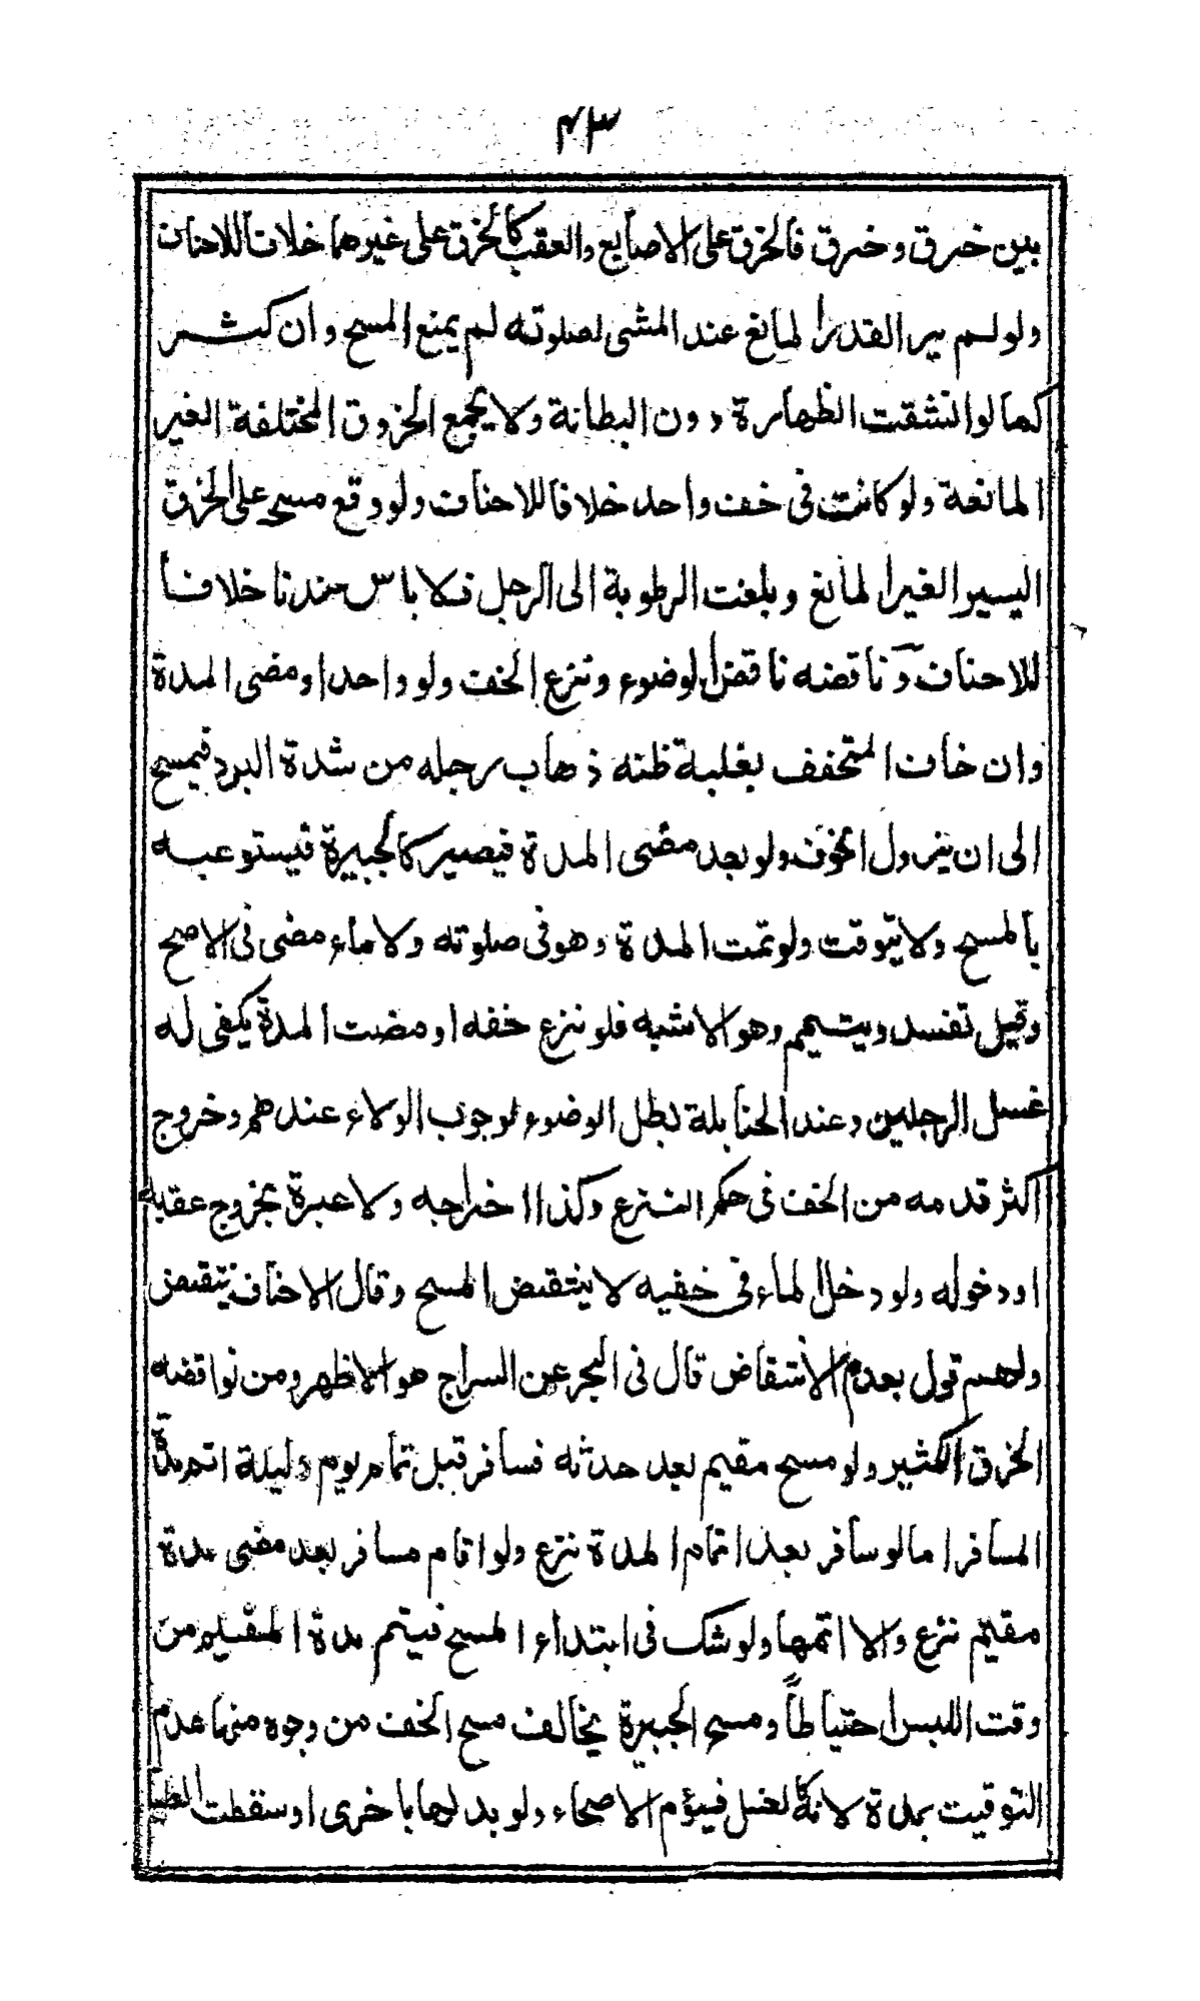 ٤٣
بين خرق وخرق فالخرق على الاصابع والعقب كالخرق على غيرهما خلافا للاحناف
ولو لم ير القدر المانع عند المشى لصلوته لم يمنع المسح وان كثر
كما لو انشقت الظهارة دون البطانة ولا يجمع الخروق المختلفة الغير
المانعة ولو كانت فى خف واحد خلافا للاحناف ولو وقع مسح على الخرق
اليسير الغير المانع وبلغت الرطوبة الى الرجل فلا باس عندنا خلافا
للاحناف وناقضه ناقض الوضوء ونزع الخف ولو واحدا ومضى المدة
وان خاف المتخفف بغلبة ظنه ذهاب رجله من شدة البرد فيمسح
الى ان يزول الخوف ولو بعد مضى المدة فيصير كالجبيرة فيستوعبه
بالمسح ولا يتوقت ولو تمت المدة وهو فى صلوته ولا ماء مضى فى الاصح
وقيل تفسد ويتيمم وهو الاشبه فلو نزع خفه او مضت المدة يكفى له
غسل الرجلين وعند الحنابلة بطل الوضوء لوجوب الولاء عندهم وخروج
اكثر قدمه من الخف فى حكم النزع وكذا اخراجه ولا عبرة بخروج عقبه
او دخوله ولو دخل الماء فى خفيه لا ينتقض المسح وقال الاحناف ينتقض
ولهم قول بعدم الانتقاض قال فى البحر عن السراج هو الاظهر ومن نواقضه
الخرق الكثير ولو مسح مقيم بعد حدثه فسافر قبل تمام يوم وليلة اتم مدة
المسافر اما لو سافر بعد اتمام المدة نزع ولو اقام مسافر بعد مضى مدة
مقيم نزع والا اتمها ولو شك فى ابتداء المسح فيتم مدة المقيم من
وقت اللبس احتياطا ومسح الجبيرة يخالف مسح الخف من وجوه منها عدم
التوقيت بمدة لانه كالغسل فيؤم الاصحاء ولو بدلها باخرى او سقطت